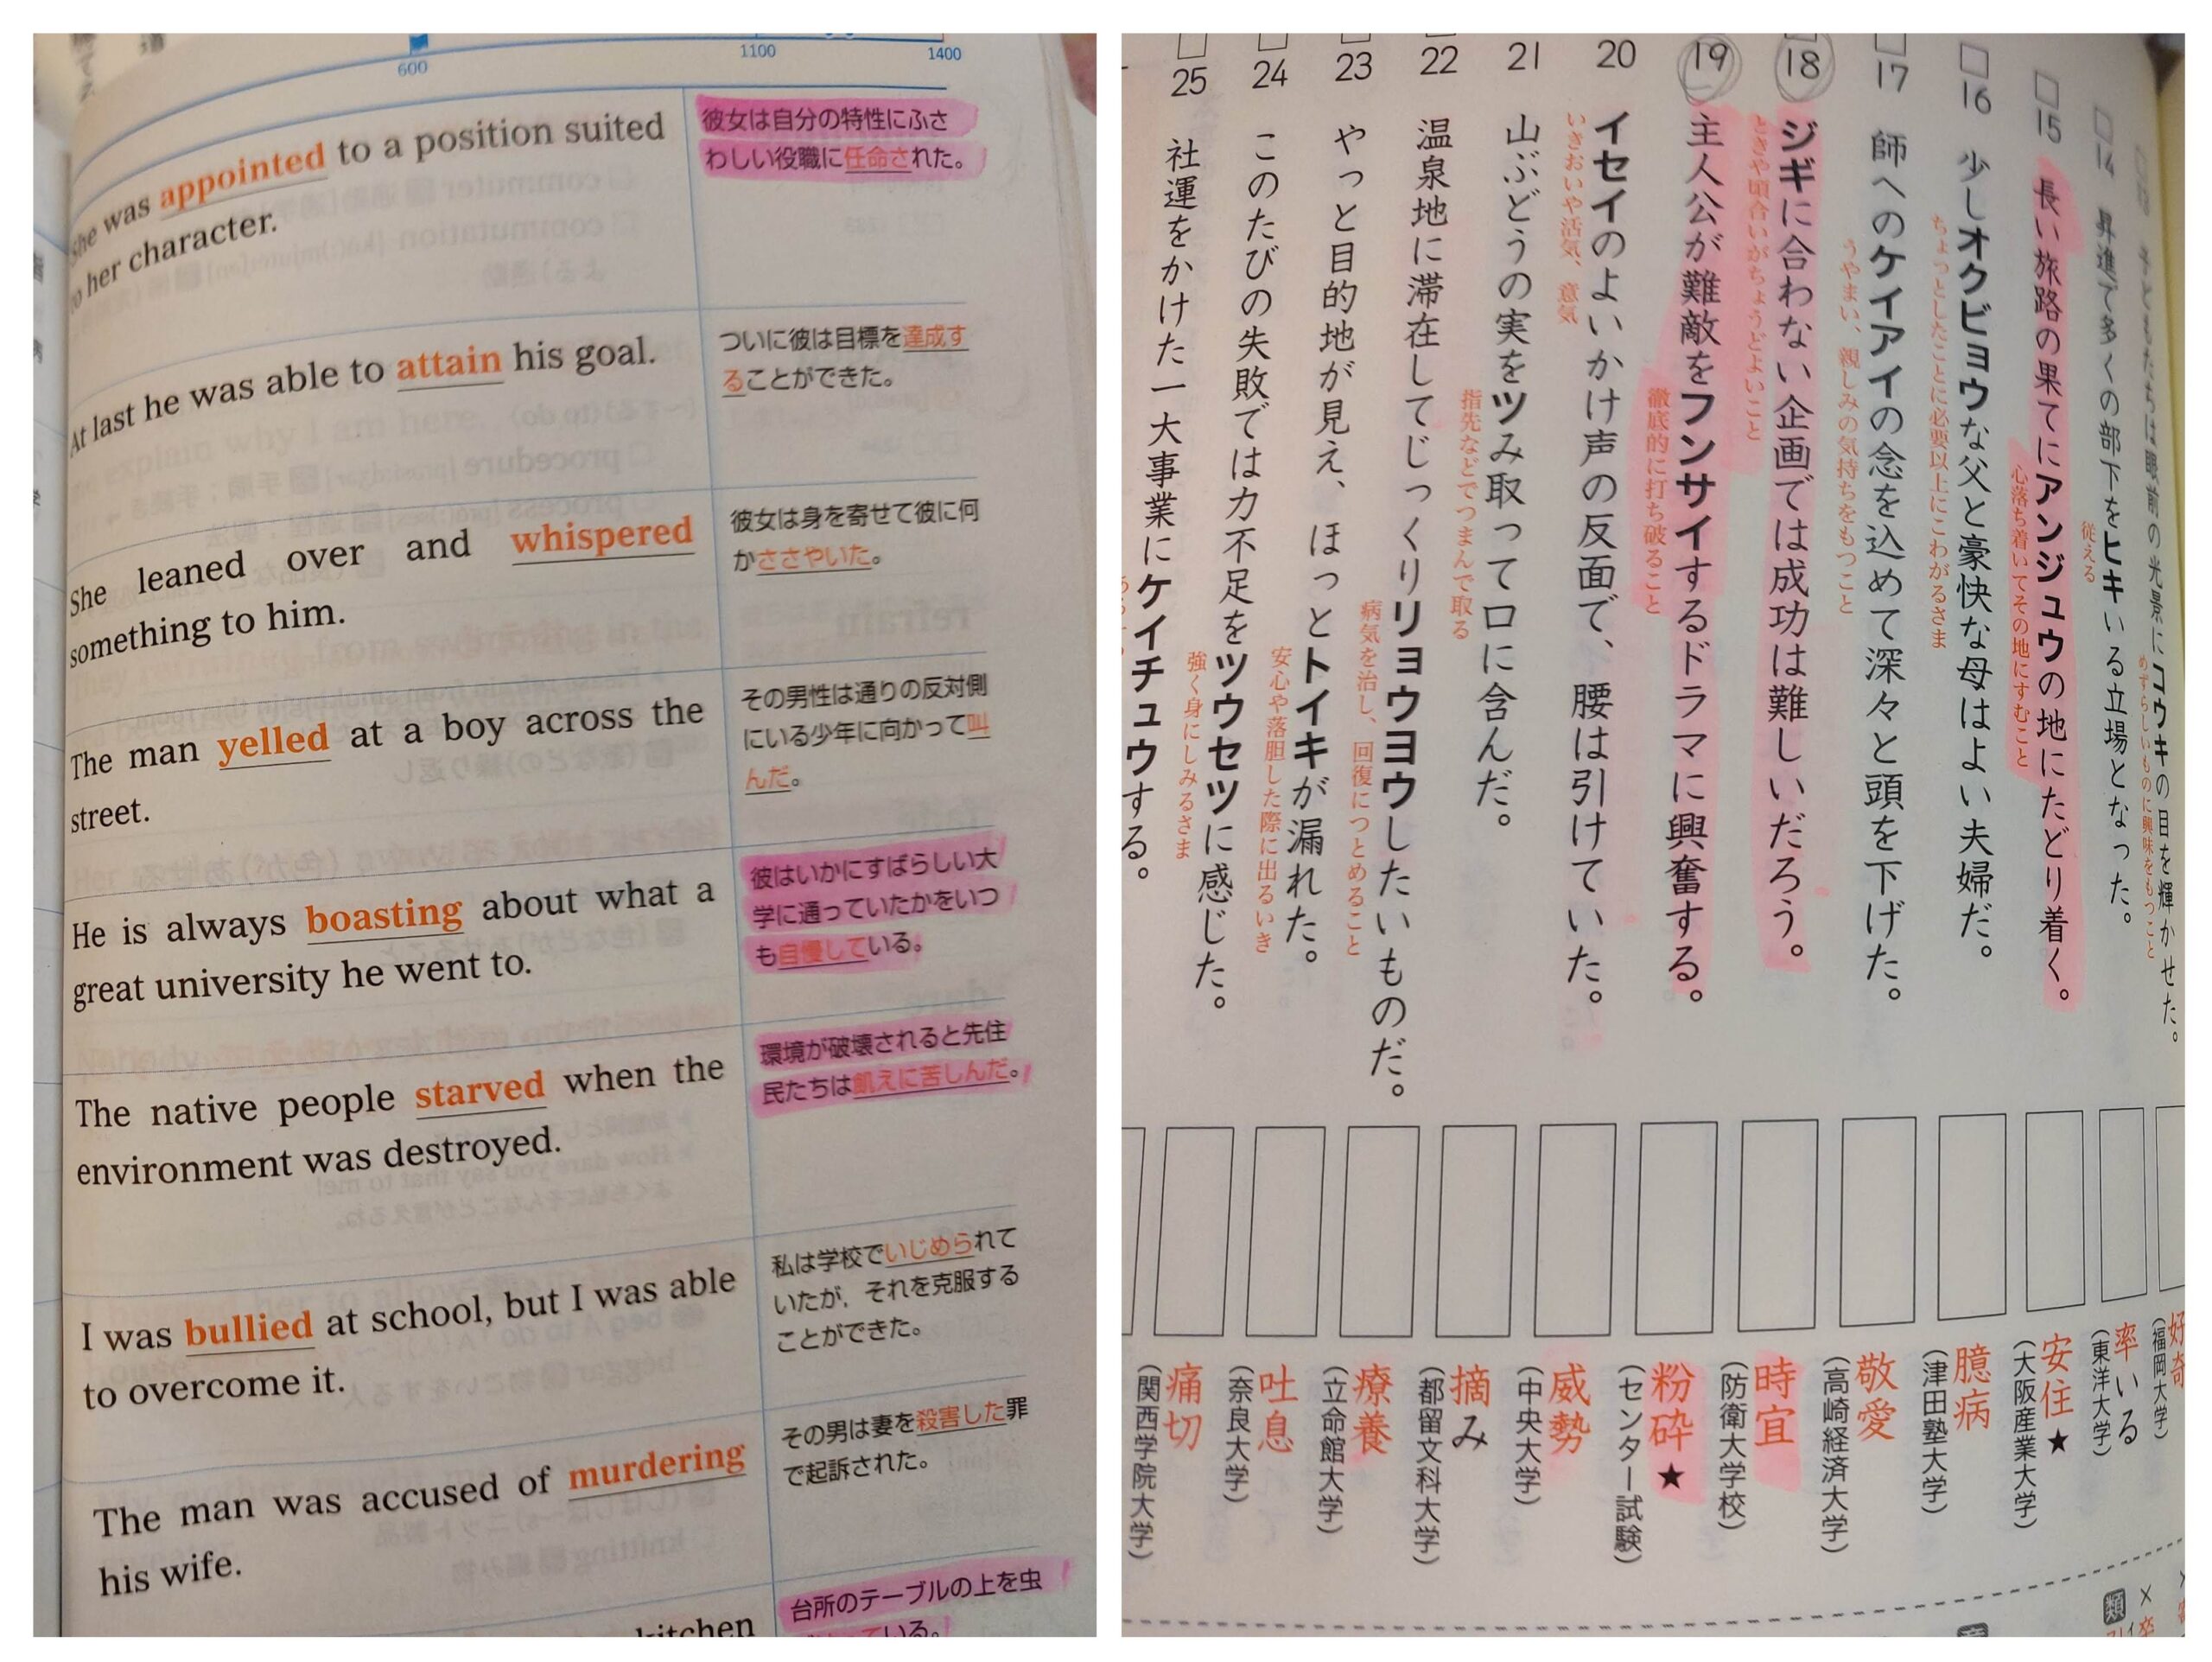 600
1100
1400
She was appointed to a position suited
to her character.
彼女は自分の特性にふさ
わしい役職に任命された。
At last he was able to attain his goal.
ついに彼は目標を達成す
ることができた。
She leaned over and whispered
something to him.
彼女は身を寄せて彼に何
かささやいた。
The man yelled at a boy across the
street.
その男性は通りの反対側
にいる少年に向かって叫
んだ。
He is always boasting about what a
great university he went to.
彼はいかにすばらしい大
学に通っていたかをいつ
も自慢している。
The native people starved when the
environment was destroyed.
環境が破壊されると先住
民たちは飢えに苦しんだ。
I was bullied at school, but I was able
to overcome it.
私は学校でいじめられて
いたが，それを克服する
ことができた。
The man was accused of murdering
his wife.
その男は妻を殺害した罪
で起訴された。
kitchen
台所のテーブルの上を虫
ている。
子どもたちは眼前の光景にコウキの目を輝かせた。
めずらしいものに興味をもつこと
好奇
(福岡大学)
14 昇進で多くの部下をヒキいる立場となった。
従える
率いる
(東洋大学)
15 長い旅路の果てにアンジュウの地にたどり着く。
心落ち着いてその地にすむこと
安住★
(大阪産業大学)
16 少しオクビョウな父と豪快な母はよい夫婦だ。
ちょっとしたことに必要以上にこわがるさま
臆病
(津田塾大学)
17 師へのケイアイの念を込めて深々と頭を下げた。
うやまい、親しみの気持ちをもつこと
敬愛
(高崎経済大学)
18 ジギに合わない企画では成功は難しいだろう。
ときや頃合いがちょうどよいこと
時宜
(防衛大学校)
19 主人公が難敵をフンサイするドラマに興奮する。
徹底的に打ち破ること
粉砕★
(センター試験)
20 イセイのよいかけ声の反面で、腰は引けていた。
いきおいや活気、意気
威勢
(中央大学)
21 山ぶどうの実をツみ取って口に含んだ。
指先などでつまんで取る
摘み
(都留文科大学)
22 温泉地に滞在してじっくりリョウヨウしたいものだ。
病気を治し、回復につとめること
療養
(立命館大学)
23 やっと目的地が見え、ほっとトイキが漏れた。
安心や落胆した際に出るいき
吐息
(奈良大学)
24 このたびの失敗では力不足をツウセツに感じた。
強く身にしみるさま
痛切
(関西学院大学)
25 社運をかけた一大事業にケイチュウする。
類